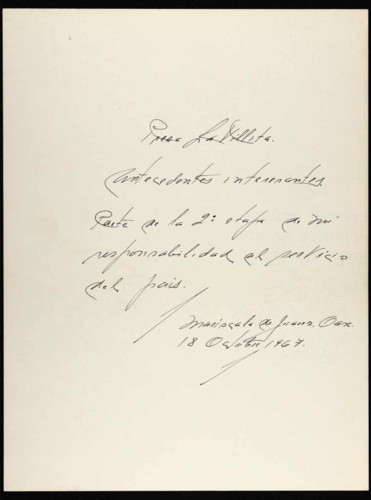 Presa La Villita.
Antecedentes interesantes.
Parte de la 2ª etapa de mi
responsabilidad al servicio
del país.
Mariscala de Juárez, Oax.
18 Octubre 1967.